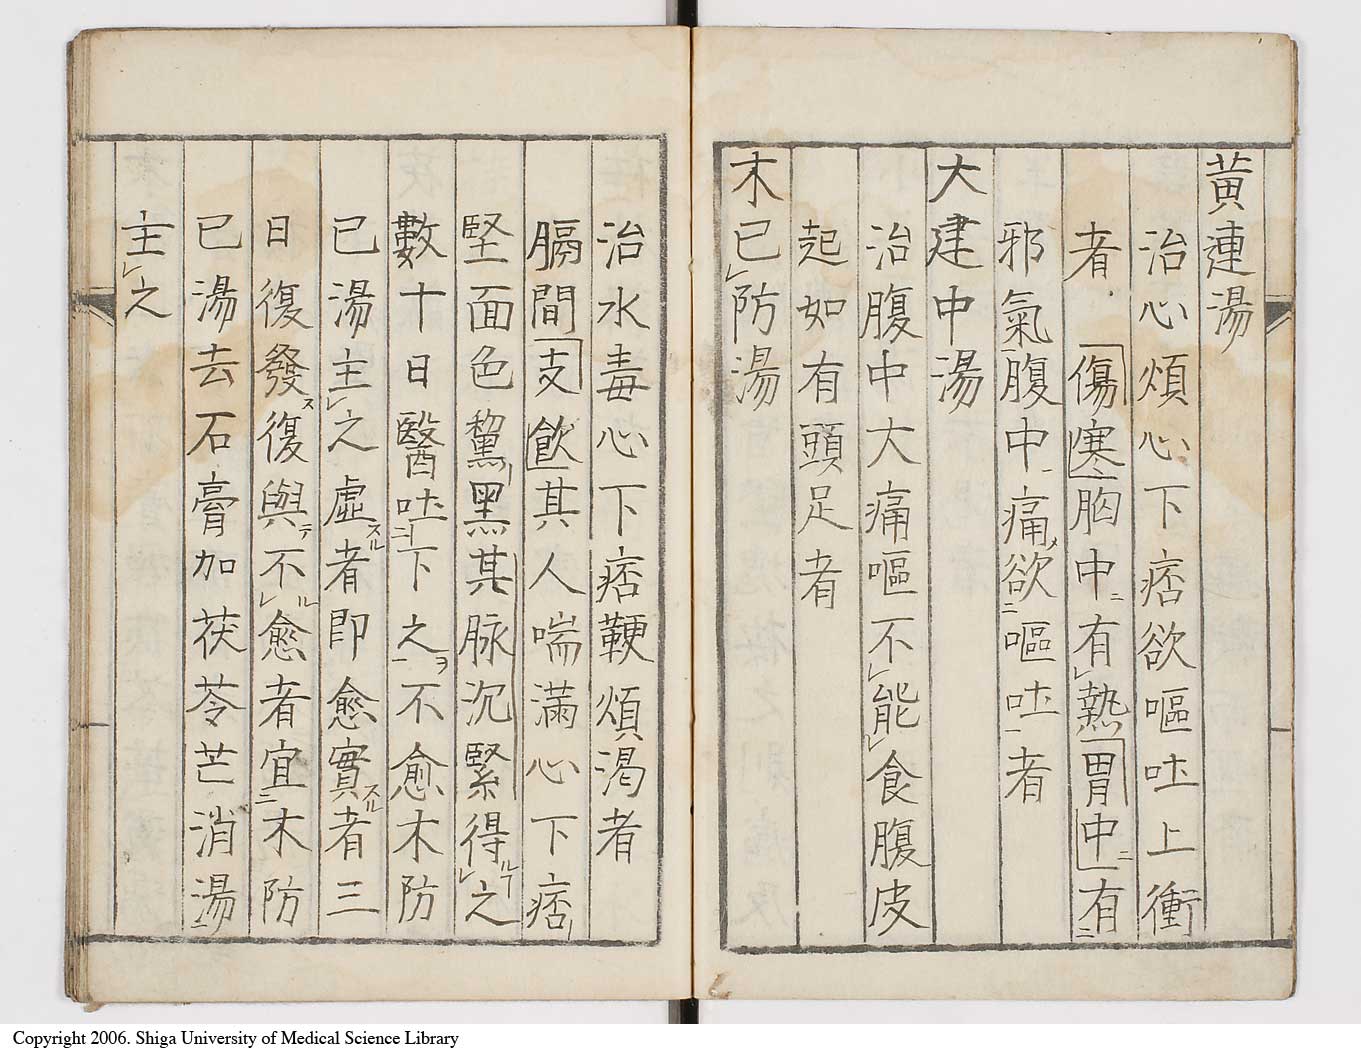 黃連湯
治心煩心下痞欲嘔吐上衝
者「傷寒」胸中ニ有レ熱「胃中ニ」有ニ
邪氣一腹中一痛メ欲ニ嘔吐一者
大建中湯
治腹中大痛嘔不レ能レ食腹皮
起如有頭足者
木已レ防湯
治水毒心下痞鞕煩渇者
膈間「支飲」其人喘滿心下痞
堅面色黧黑其脉沉緊得レ之ルー
數十日醫吐ニ下之ヲ一不愈木防
已湯主レ之虛スル者即愈實スル者三
日復發ス復與テ不レ愈ル者宜ニ木防
已湯去石膏加茯苓芒消湯ニ
主レ之
Copyright 2006. Shiga University of Medical Science Library